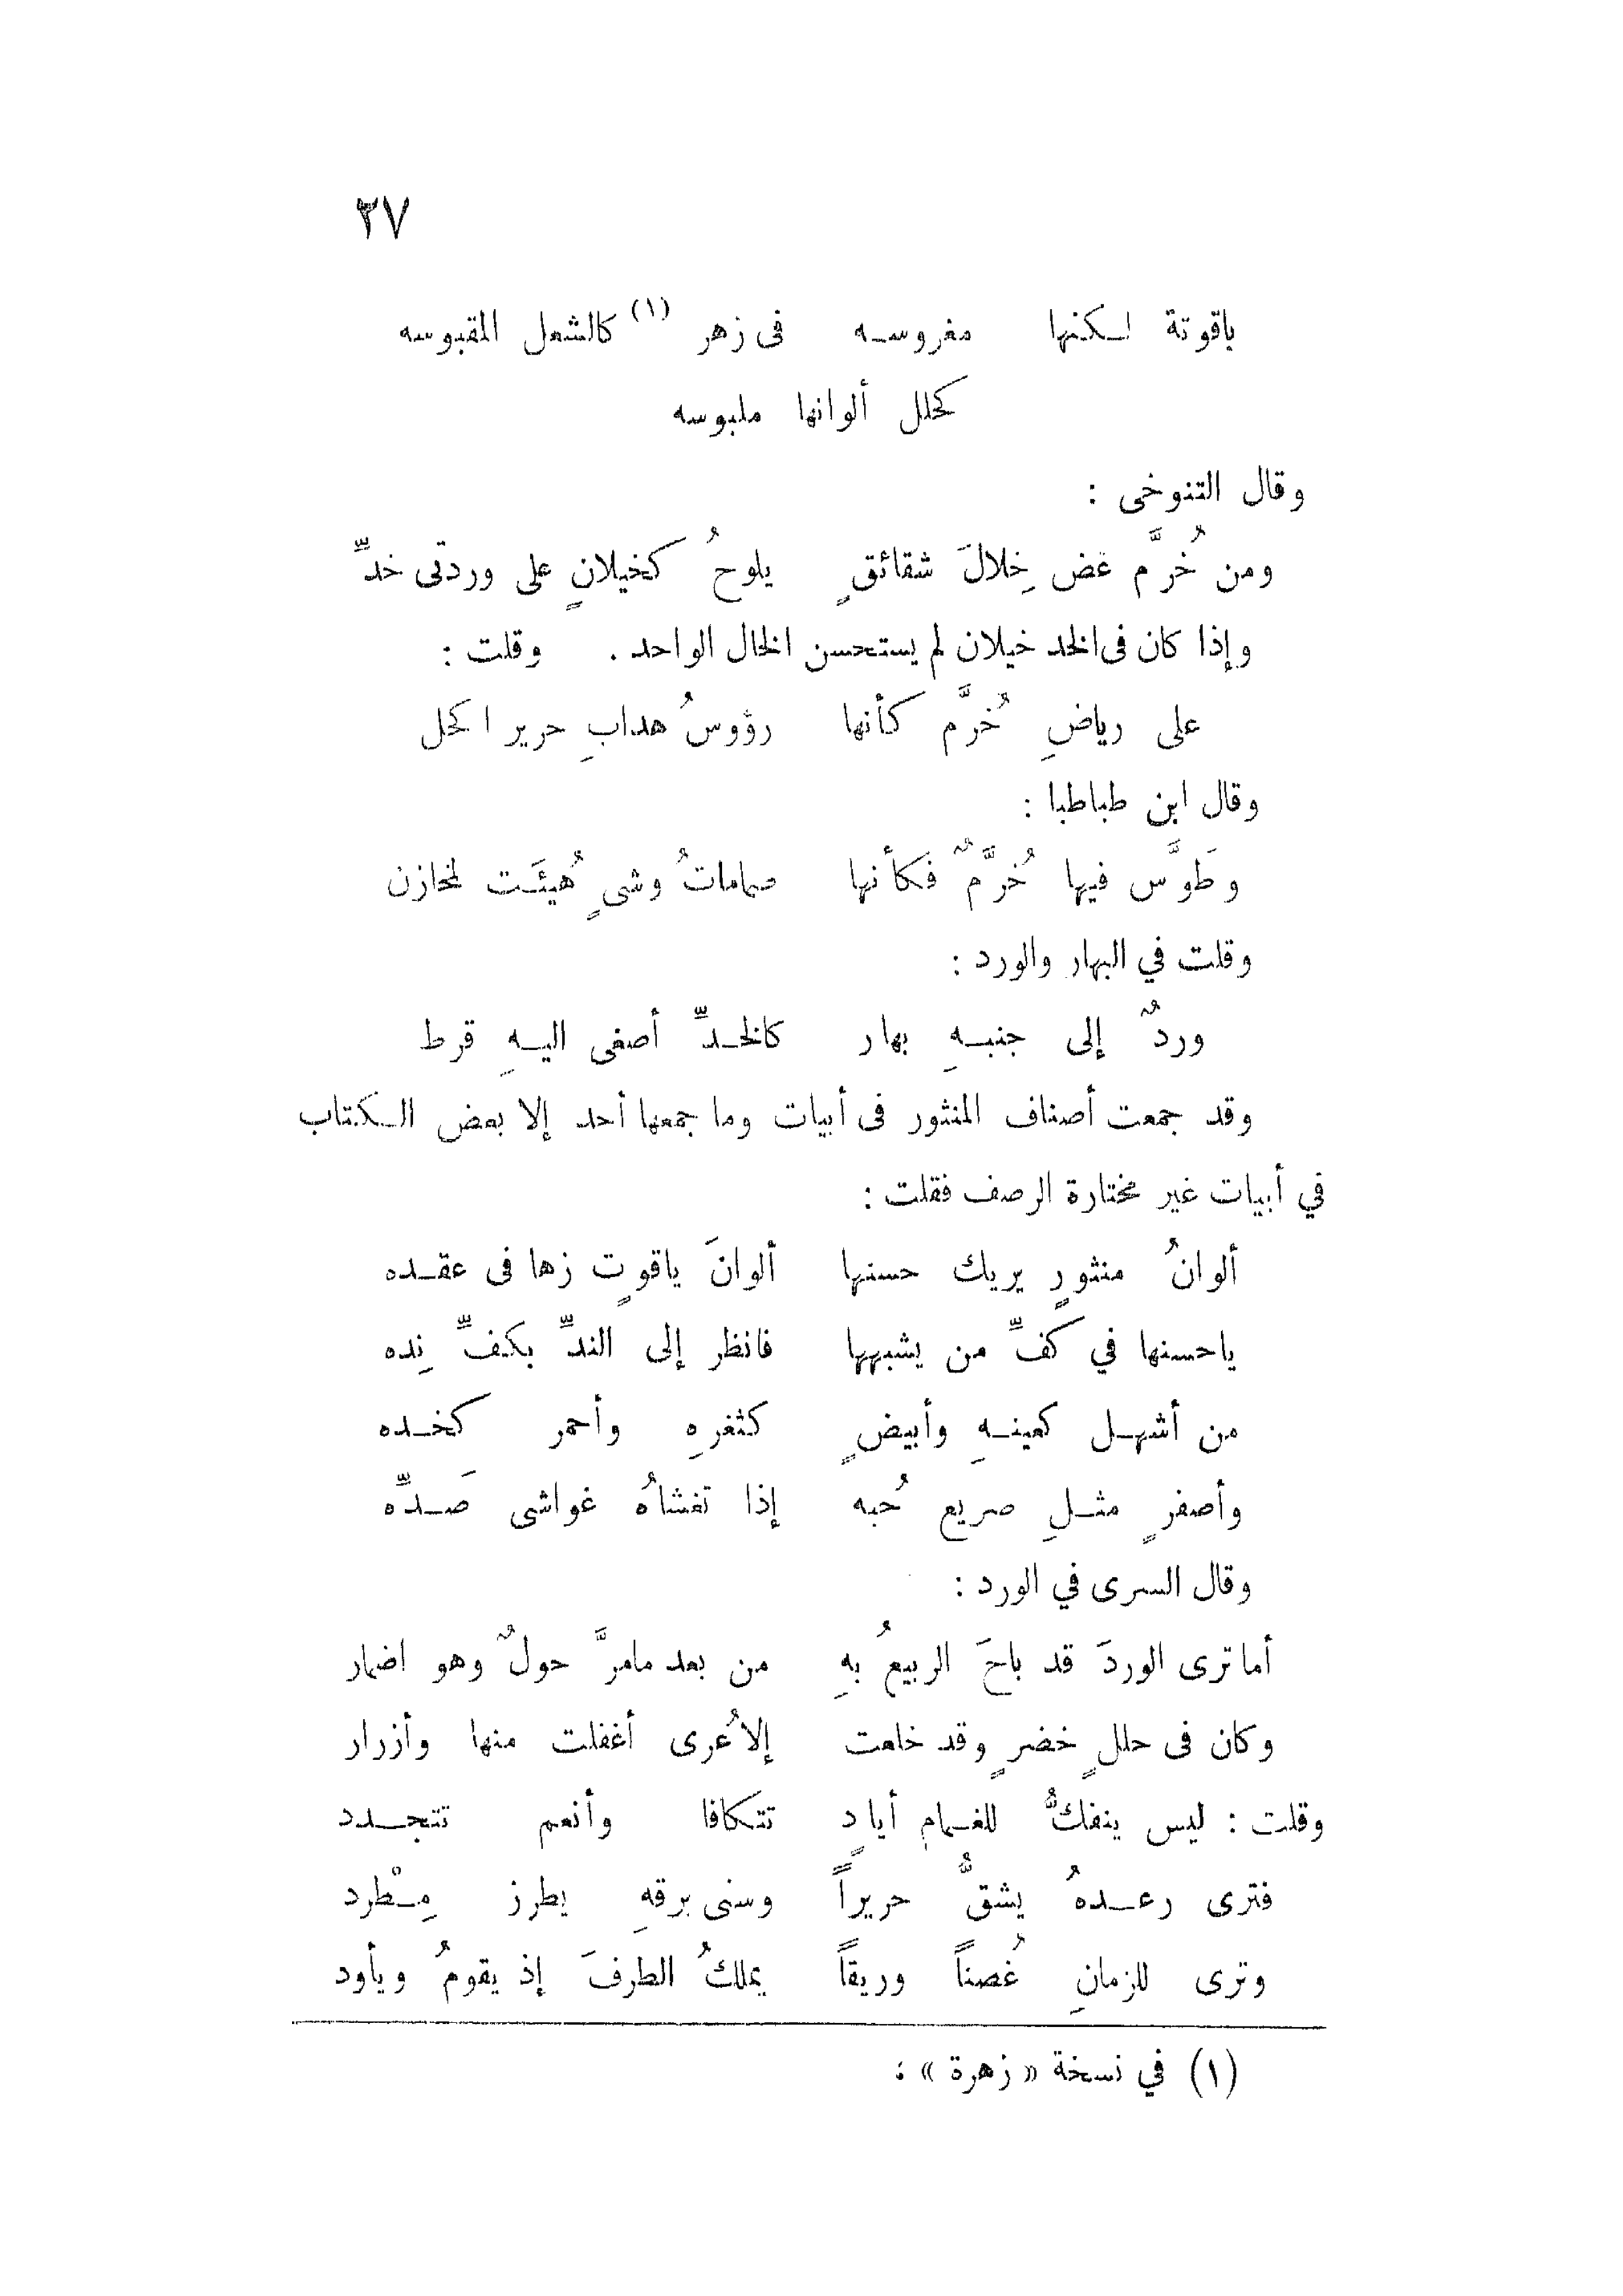 ٣٧
ياقوتة لكنها مغروسه فى زهر (١) كالشعل المقبوسه
كحلل ألوانها ملبوسه
وقال التنوخى :
ومن خُرَّم غض خِلالَ شقائقٍ يلوحُ كخيلانٍ على وردتى خدِّ
وإذا كان فى الخد خيلان لم يستحسن الخال الواحد . وقلت :
على رياضِ خُرَّم كأنها رؤوسُ هدابِ حرير اكحل
وقال ابن طباطبا :
وطَوَّس فيها خُرَّمٌ فكأنها صماماتُ وشىٍ هُيئَت لمخازن
وقلت في البهار والورد :
وردٌ إلى جنبهِ بهار كالخدِّ أصغى اليهِ قرط
وقد جمعت أصناف المنثور فى أبيات وما جمعها أحد إلا بعض الكتاب
في أبيات غير مختارة الرصف فقلت :
ألوانُ منثورٍ يريك حسنها ألوانَ ياقوتٍ زها فى عقده
ياحسنها في كفِّ من يشبهها فانظر إلى الندِّ بكفِّ نِده
من أشهل كعينهِ وأبيضٍ كثغرهِ وأحمر كخده
وأصفرٍ مثلِ صريع حُبه إذا تغشاهُ غواشى صَدِّه
وقال السرى في الورد :
أما ترى الوردَ قد باحَ الربيعُ بهِ من بعد مامرَّ حولٌ وهو اضمار
وكان فى حللٍ خضرٍ وقد خلعت إلا عُرى أغفلت منها وأزرار
وقلت : ليس ينفكُّ للغمام أيادٍ تتكافا وأنعم تتجدد
فترى رعدهُ يشقُّ حريراً وسنى برقهِ يطرز مِطْرد
وترى للزمانِ غُصناً وريقاً يملكُ الطرفَ إذ يقومُ ويأود
(١) في نسخة « زهرة » :